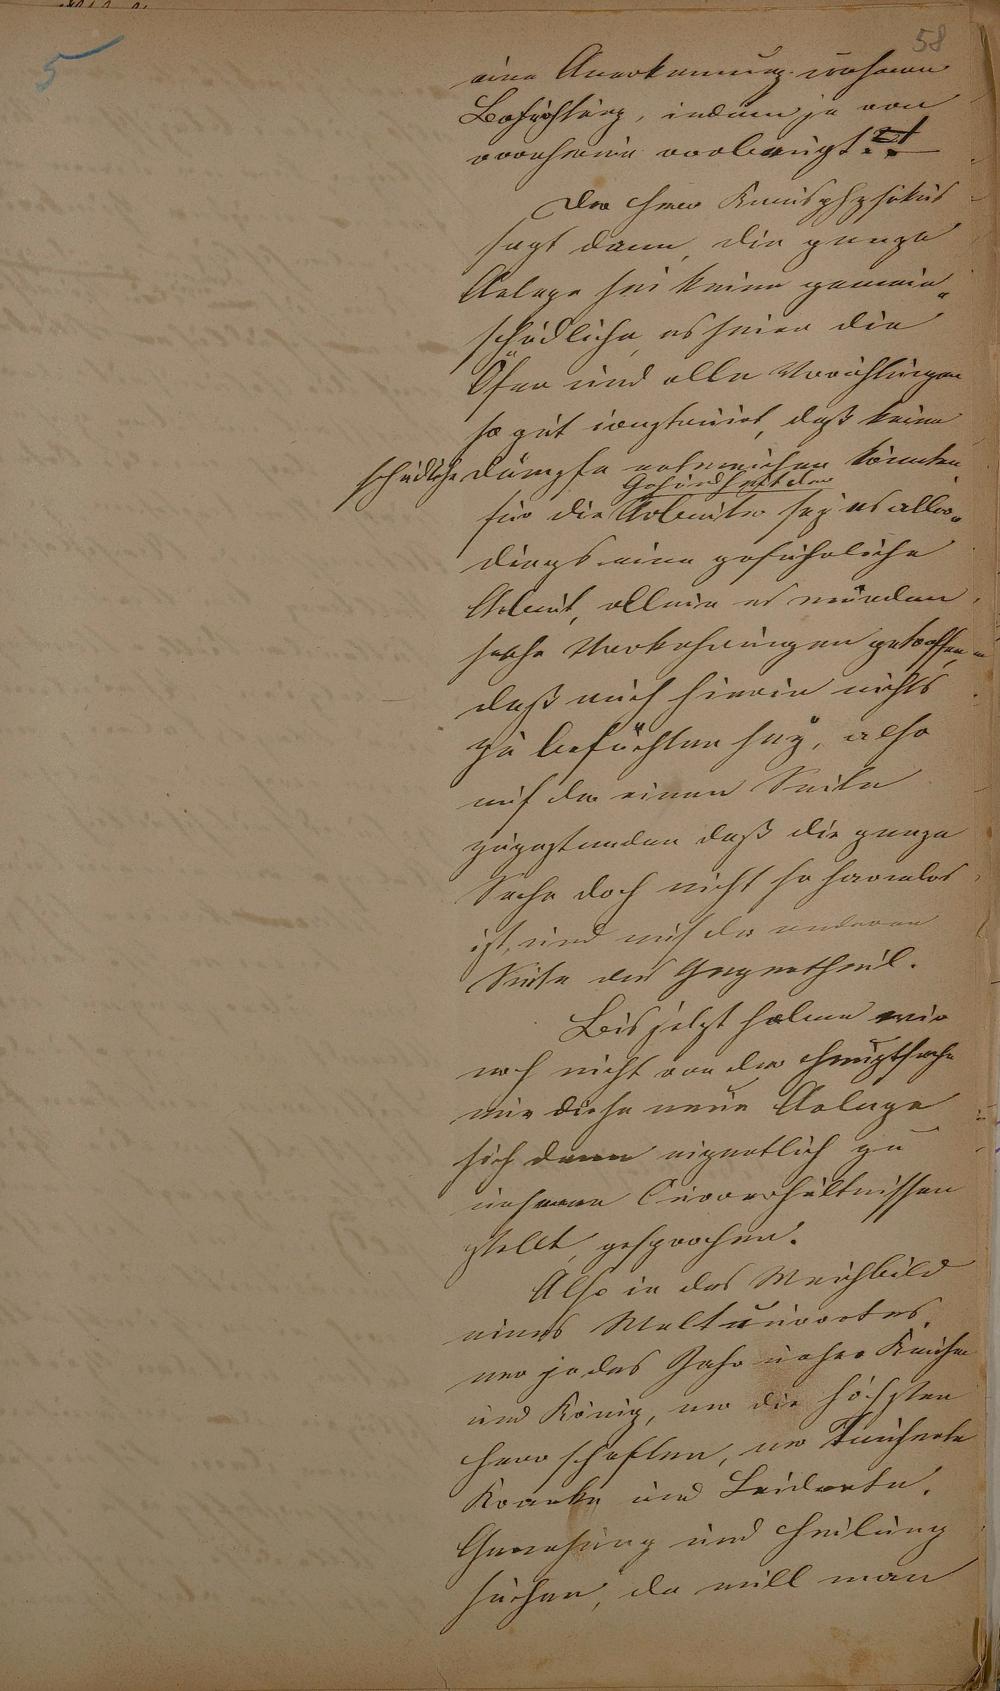 58
5
eine Anerkennung unserer
Befürchtung, indem ja von
vornherein vorbeugt?!
Der Herr Kreisphysikus
sagt dann, die ganze
Anlage sei keine gemein-
schädliche, es seien die
Öfen und alle Vorrichtungen
so gut construirt, daß keine
schädliche Dämpfe entweichen könnten,
Gesundheit der
für die Arbeiter sey es aller-
dings eine gefährliche
Arbeit, allein es würden
solche Vorkehrungen getroffen,
daß auch hierin nichts
zu befüchten sey, also
auf der einen Seite
zugestanden daß die ganze
Sache doch nicht so harmlos
ist, und auf der anderen
Seite das Gegentheil.
Bis jetzt haben wir
noch nicht von der Hauptsache
wie diese neue Anlage
sich denn eigentlich zu
unseren Curverhältnissen
stellt, gesprochen.
Also in das Weichbild
eines Weltkurortes,
wo jedes Jahr unser Kaiser
und König, wo die höchsten
Herrschaften, wo Tausende
Kranke und Leidende,
Genesung und Heilung
suchen, da will man